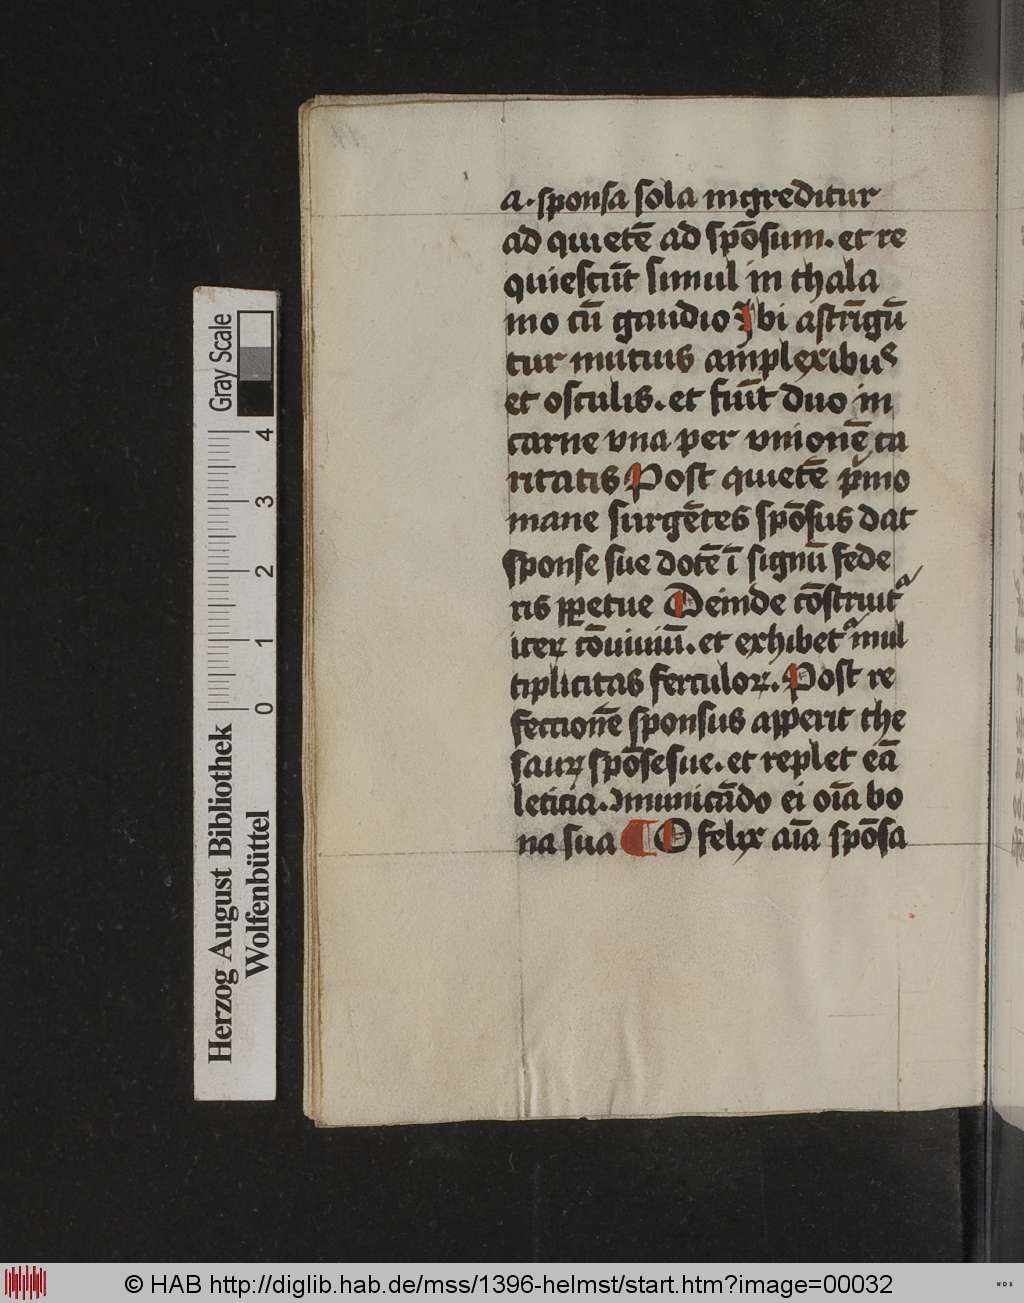 a. sponsa sola ingreditur
ad quietē ad spōsum. et re
quiescūt simul in thala
mo cū gaudio Ibi astrīgū
tur mutuis amplexibus
et osculis. et fiūt duo in
carne vna per vnionē ca
ritatis Post quietē pͥmo
mane surgētes spōsus dat
sponse sue dotē ī signū fede
ris ꝑpetue Deinde cōstruitᷣ
iteꝝ cōuiuiū. et exhibetᷣ mul
tiplicitas ferculoꝝ. Post re
fectionē sponsus apperit the
sauꝝ spōse sue. et replet eā
leticia. ꝯmunicādo ei oīa bo
na sua ¶ O felix aīa spōsa
Herzog August Bibliothek
Wolfenbüttel
Gray Scale
0 1 2 3 4
© HAB http://diglib.hab.de/mss/1396-helmst/start.htm?image=00032